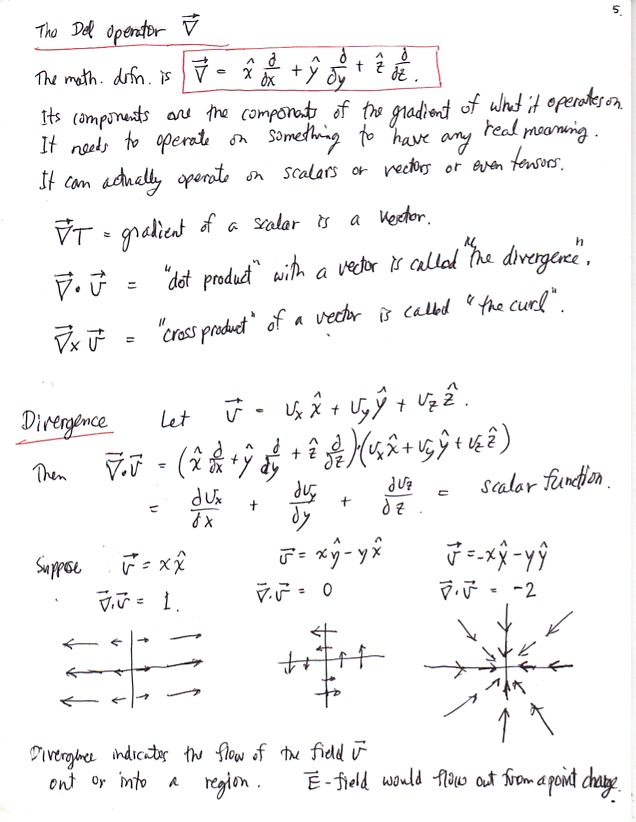 5.
The Del operator ∇⃗
The math. defn. is ∇⃗ = x̂ ∂/∂x + ŷ ∂/∂y + ẑ ∂/∂z.
Its components are the components of the gradient of what it operates on.
It needs to operate on something to have any real meaning.
It can actually operate on scalars or vectors or even tensors.
∇⃗T = gradient of a scalar is a vector.
∇⃗·v⃗ = "dot product" with a vector is called "the divergence".
∇⃗×v⃗ = "cross product" of a vector is called "the curl".
Divergence Let v⃗ = vₓx̂ + v_yŷ + v_zẑ.
Then ∇⃗·v⃗ = (x̂ ∂/∂x + ŷ ∂/∂y + ẑ ∂/∂z)·(vₓx̂ + v_yŷ + v_zẑ)
= ∂vₓ/∂x + ∂v_y/∂y + ∂v_z/∂z = scalar function.
Suppose v⃗ = xx̂ v⃗ = xŷ - yx̂ v⃗ = -xx̂ - yŷ
∇⃗·v⃗ = 1. ∇⃗·v⃗ = 0 ∇⃗·v⃗ = -2
Divergence indicates the flow of the field v⃗
out or into a region. E⃗-field would flow out from a point charge.